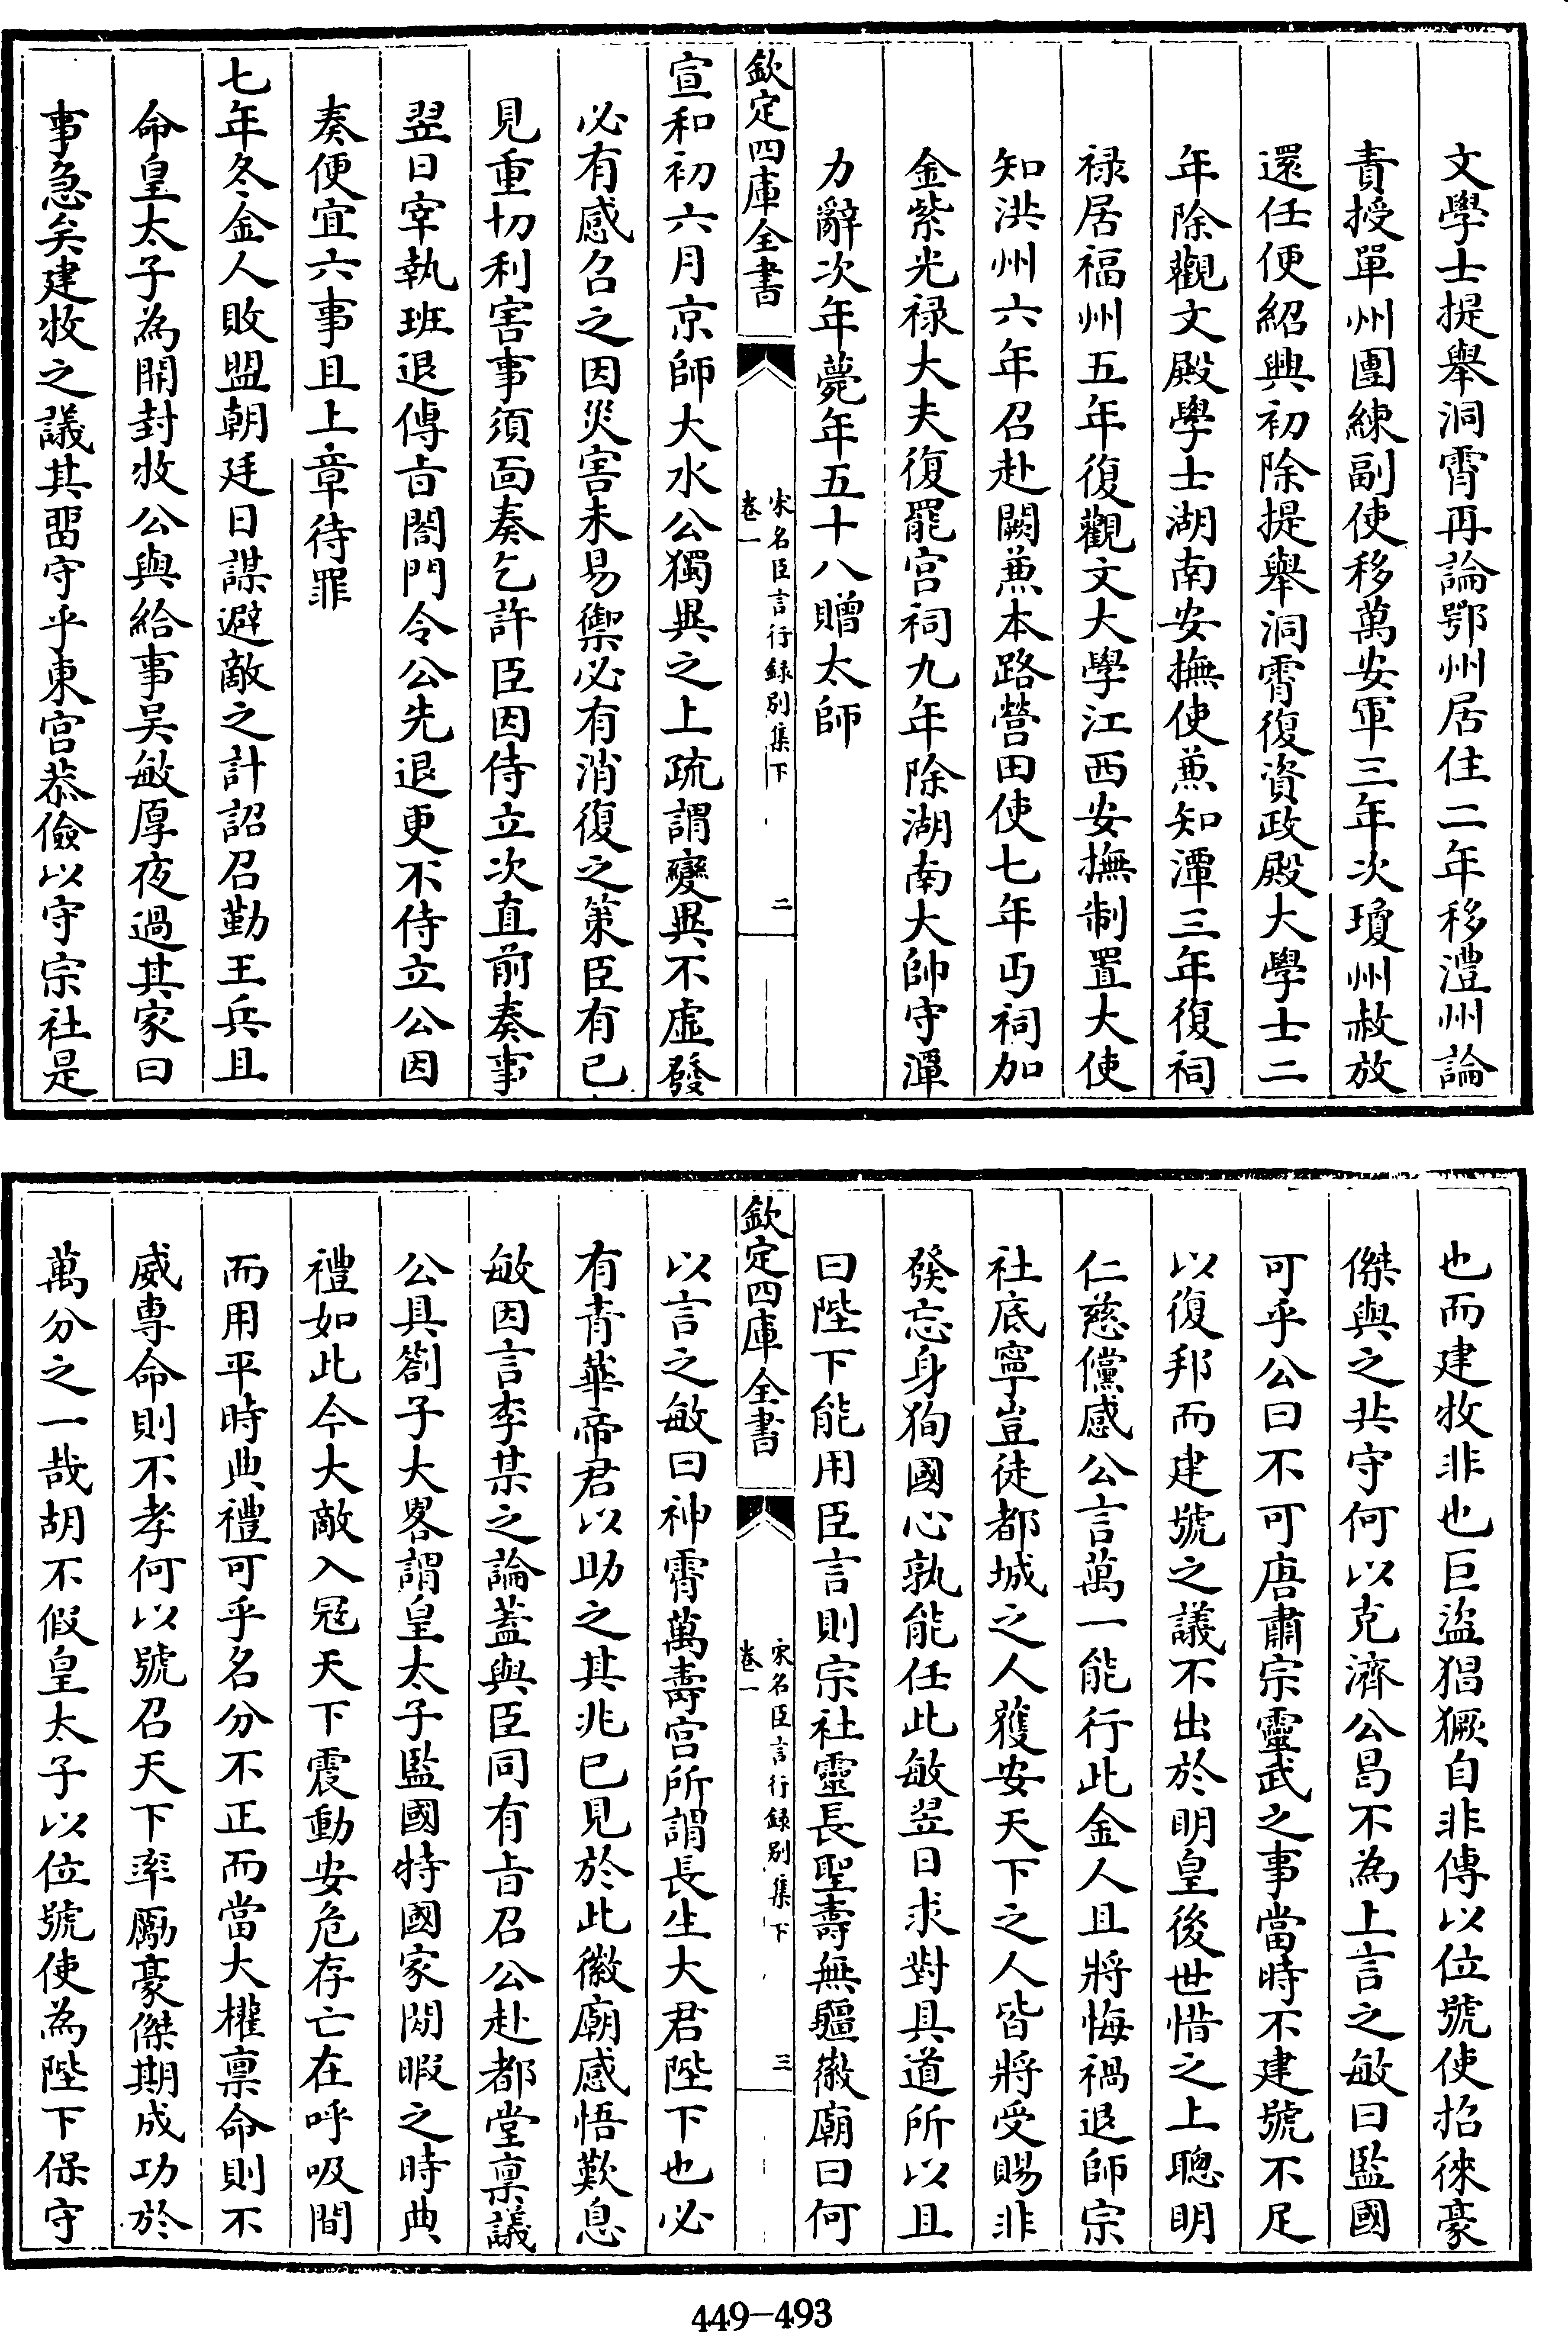 文學士提舉洞霄再論鄂州居住二年移澧州論
責授單州團練副使移萬安軍三年次瓊州赦放
還任便紹興初除提舉洞霄復資政殿大學士二
年除觀文殿學士湖南安撫使兼知潭三年復祠
禄居福州五年復觀文大學江西安撫制置大使
知洪州六年召赴闕兼本路營田使七年丐祠加
金紫光禄大夫復罷宫祠九年除湖南大帥守潭
力辭次年薨年五十八贈太師
欽定四庫全書
宋名臣言行録别集下
卷一
二
宣和初六月京師大水公獨異之上疏謂變異不虚發
必有感召之因災害未易禦必有消復之策臣有已
見重切利害事須面奏乞許臣因侍立次直前奏事
翌日宰執班退傳㫖閤門令公先退更不侍立公因
奏便宜六事且上章待罪
七年冬金人敗盟朝廷日謀避敵之計詔召勤王兵且
命皇太子為開封牧公與給事吴敏厚夜過其家曰
事急矣建牧之議其畱守乎東宫恭儉以守宗社是
也而建牧非也巨盜猖獗自非傳以位號使招徠豪
傑與之共守何以克濟公曷不為上言之敏曰監國
可乎公曰不可唐肅宗靈武之事當時不建號不足
以復邦而建號之議不出於明皇後世惜之上聰明
仁慈儻感公言萬一能行此金人且將悔禍退師宗
社底寧豈徒都城之人獲安天下之人皆將受賜非
發忘身狥國心孰能任此敏翌日求對具道所以且
曰陛下能用臣言則宗社靈長聖壽無疆徽廟曰何
欽定四庫全書
宋名臣言行録别集下
卷一
三
以言之敏曰神霄萬壽宫所謂長生大君陛下也必
有青華帝君以助之其兆已見於此徽廟感悟歎息
敏因言李某之論蓋與臣同有㫖召公赴都堂禀議
公具劄子大畧謂皇太子監國特國家閒暇之時典
禮如此今大敵入冦天下震動安危存亡在呼吸間
而用平時典禮可乎名分不正而當大權禀命則不
威專命則不孝何以號召天下率勵豪傑期成功於
萬分之一哉胡不假皇太子以位號使為陛下保守
449-493